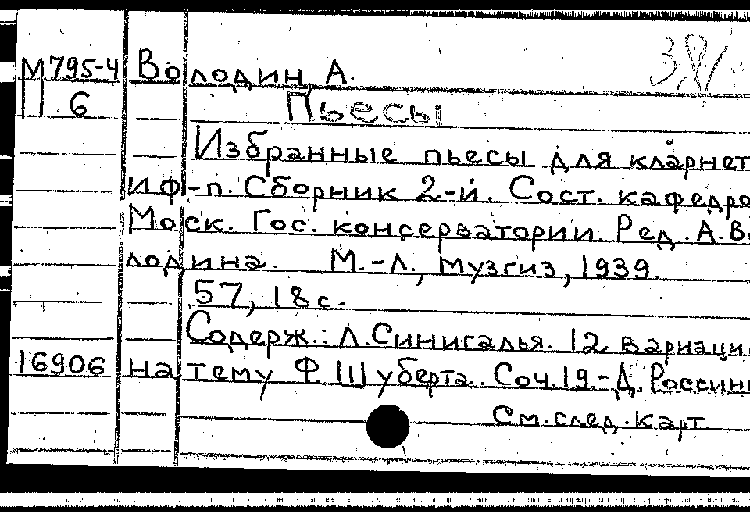 М795-4 Володин, А.
П 6 Пьесы
Избранные пьесы для кларнет
и ф-п. Сборник 2-й. Сост. кафедро
Моск. Гос. консерватории. Ред. А.В.
лодина. М.-Л., Музгиз, 1939.
57, 18 с.
Содерж.: Л.Синигалья. 12 вариаци
16906 на тему Ф. Шуберта. Соч.19.-Д. Россини
См.след.карт